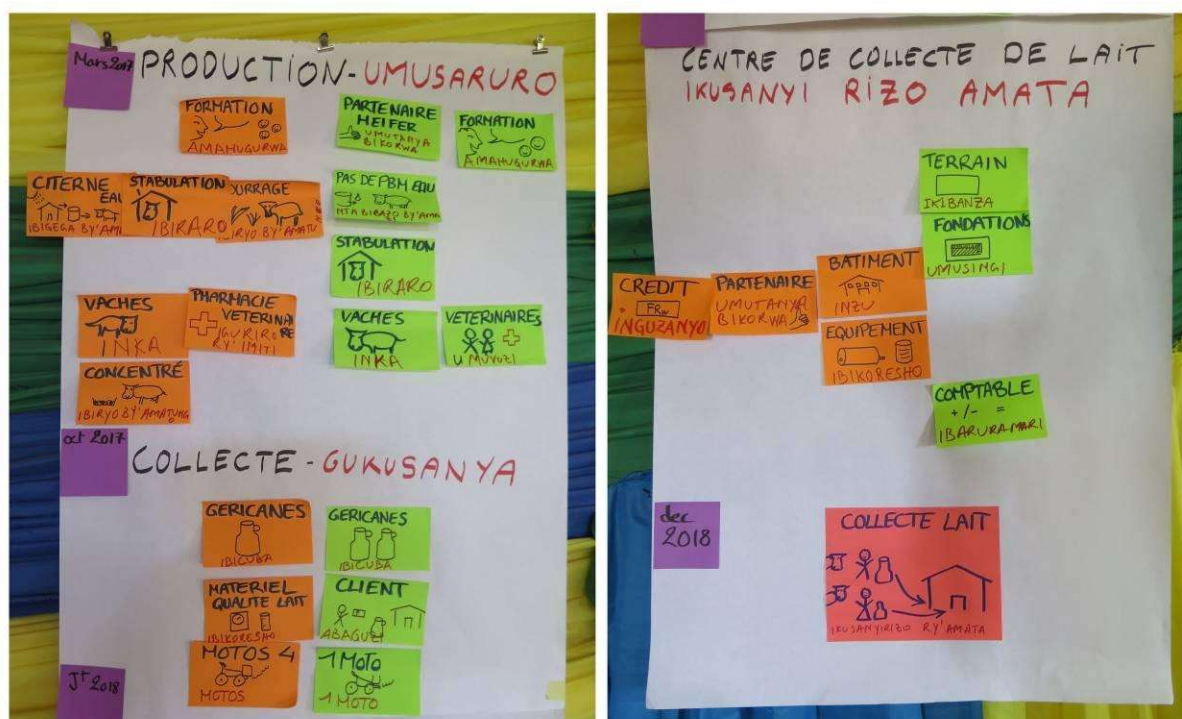 Mars 2017
PRODUCTION - UMUSARURO
FORMATION
AMAHUGURWA
PARTENAIRE
HEIFER
UMUTANYA
BIKORWA
FORMATION
AMAHUGURWA
CITERNE
EAU
IBIGEGA BY'AMI
STABULATION
IBIRARO
OURRAGE
BY'AMATU
PAS DE PBM EAU
NTA BIBAZO BY'AMA
STABULATION
IBIRARO
VACHES
INKA
PHARMACIE
VETERINAI
RE
IGURIRO
RY'IMITI
VACHES
INKA
VETERINAIRES
UMUVUZI
CONCENTRÉ
IBIRYO BY'AMATUNG
oct 2017
COLLECTE - GUKUSANYA
GERICANES
IBICUBA
GERICANES
IBICUBA
MATERIEL
QUALITE LAIT
IBIKORESHO
CLIENT
ABAGUZI
MOTOS 4
MOTOS
1 MOTO
1 MOTO
Jt 2018
CENTRE DE COLLECTE DE LAIT
IKUSANYI RIZO AMATA
TERRAIN
IKIBANZA
FONDATIONS
UMUSINGI
CREDIT
FRW
INGUZANYO
PARTENAIRE
UMUTANYA
BIKORWA
BATIMENT
INZU
EQUIPEMENT
IBIKORESHO
COMPTABLE
+/- =
IBARURAMARI
dec
2018
COLLECTE LAIT
IKUSANYIRIZO RY'AMATA